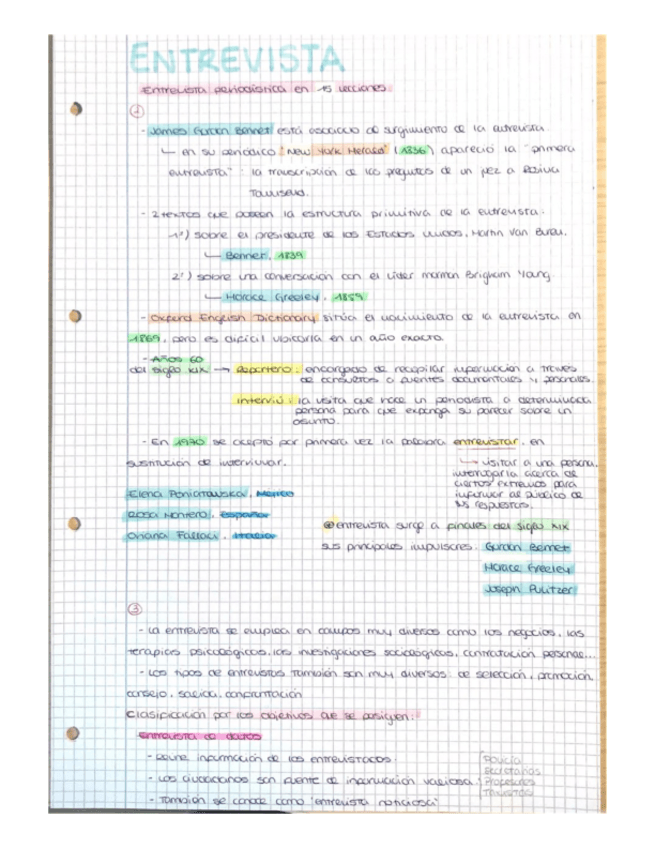 ENTREVISTA
Entrevista periodística en 15 lecciones
①
- James Gordon Bennet está asociado al surgimiento de la entrevista.
en su periódico "New York Herald" (1836) apareció la "primera
entrevista": la transcripción de las preguntas de un juez a Rosina
Townsend.
- 2 textos que poseen la estructura primitiva de la entrevista.
1º) sobre el presidente de los Estados Unidos, Martin Van Buren.
Bennet, 1839
2º) sobre una conversación con el líder mormon Brigham Young.
Horace Greeley, 1859
- Oxford English Dictionary sitúa el nacimiento de la entrevista en
1869, pero es difícil ubicarla en un año exacto.
- Años 60
del siglo XIX → Reportero: encargado de recopilar información a través
de consultas a fuentes documentales y personales.
Interviú: la visita que hace un periodista a determinada
persona para que exponga su parecer sobre un
asunto.
- En 1970 se aceptó por primera vez la palabra entrevistar, en
sustitución de interviuvar.
visitar a una persona,
interrogarla acerca de
ciertos extremos para
informar al público de
sus respuestas.
Elena Poniatowska, México
Rosa Montero, España
Oriana Fallaci, Italia
entrevista surge a finales del siglo XIX
sus principales impulsores: Gordon Bennet
Horace Greeley
Joseph Pulitzer
③
- La entrevista se emplea en campos muy diversos como los negocios, las
terapias psicológicas, las investigaciones sociológicas, contratación personal...
- Los tipos de entrevistas también son muy diversos: de selección, promoción,
consejo, salida, confrontación
Clasificación por los objetivos que se persiguen:
Entrevista de datos
- Reune información de los entrevistados.
- Los ciudadanos son fuente de información valiosa:
Policía
Secretarios
Profesores
Taxistas
- También se conoce como "entrevista noticiosa"